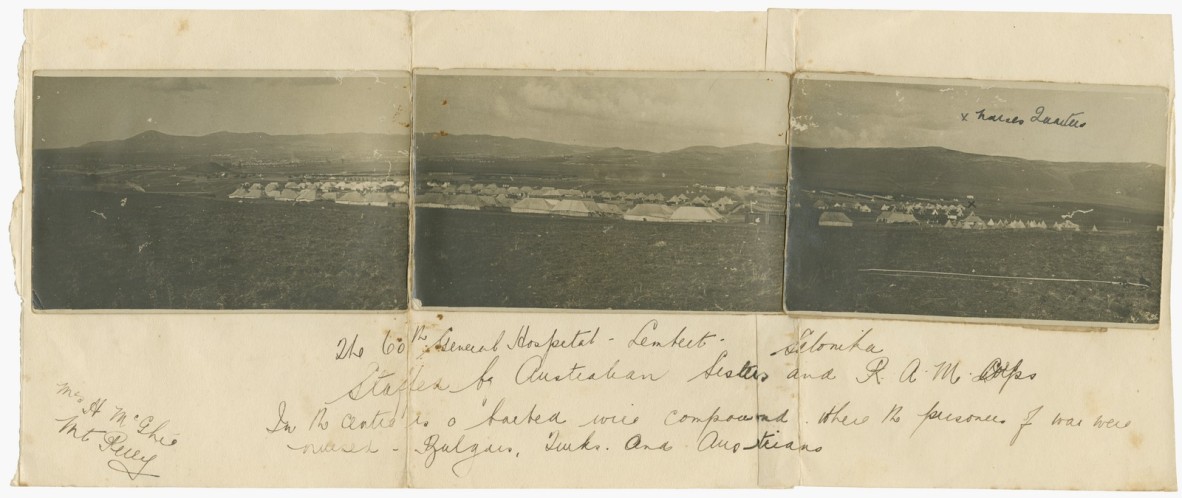 x Nurses Quarters
x
The 60th General Hospital - Lembet - Salonika
Staffed by Australian Sisters and R. A. M. Corps
In the centre is a barbed wire compound where the prisoners of war were
nursed - Bulgars, Turks. And Austrians
Mrs H McGhie
Mt